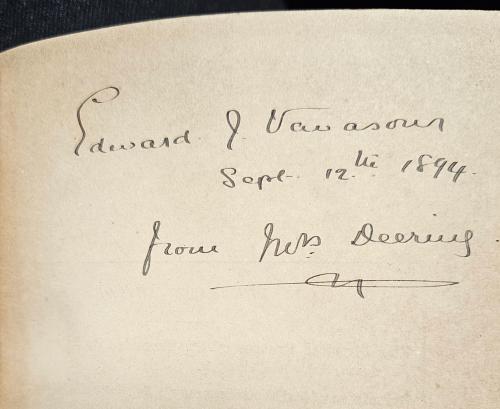 Edward J. Vavasour
Sept. 12th 1894.
from Mrs Deering.